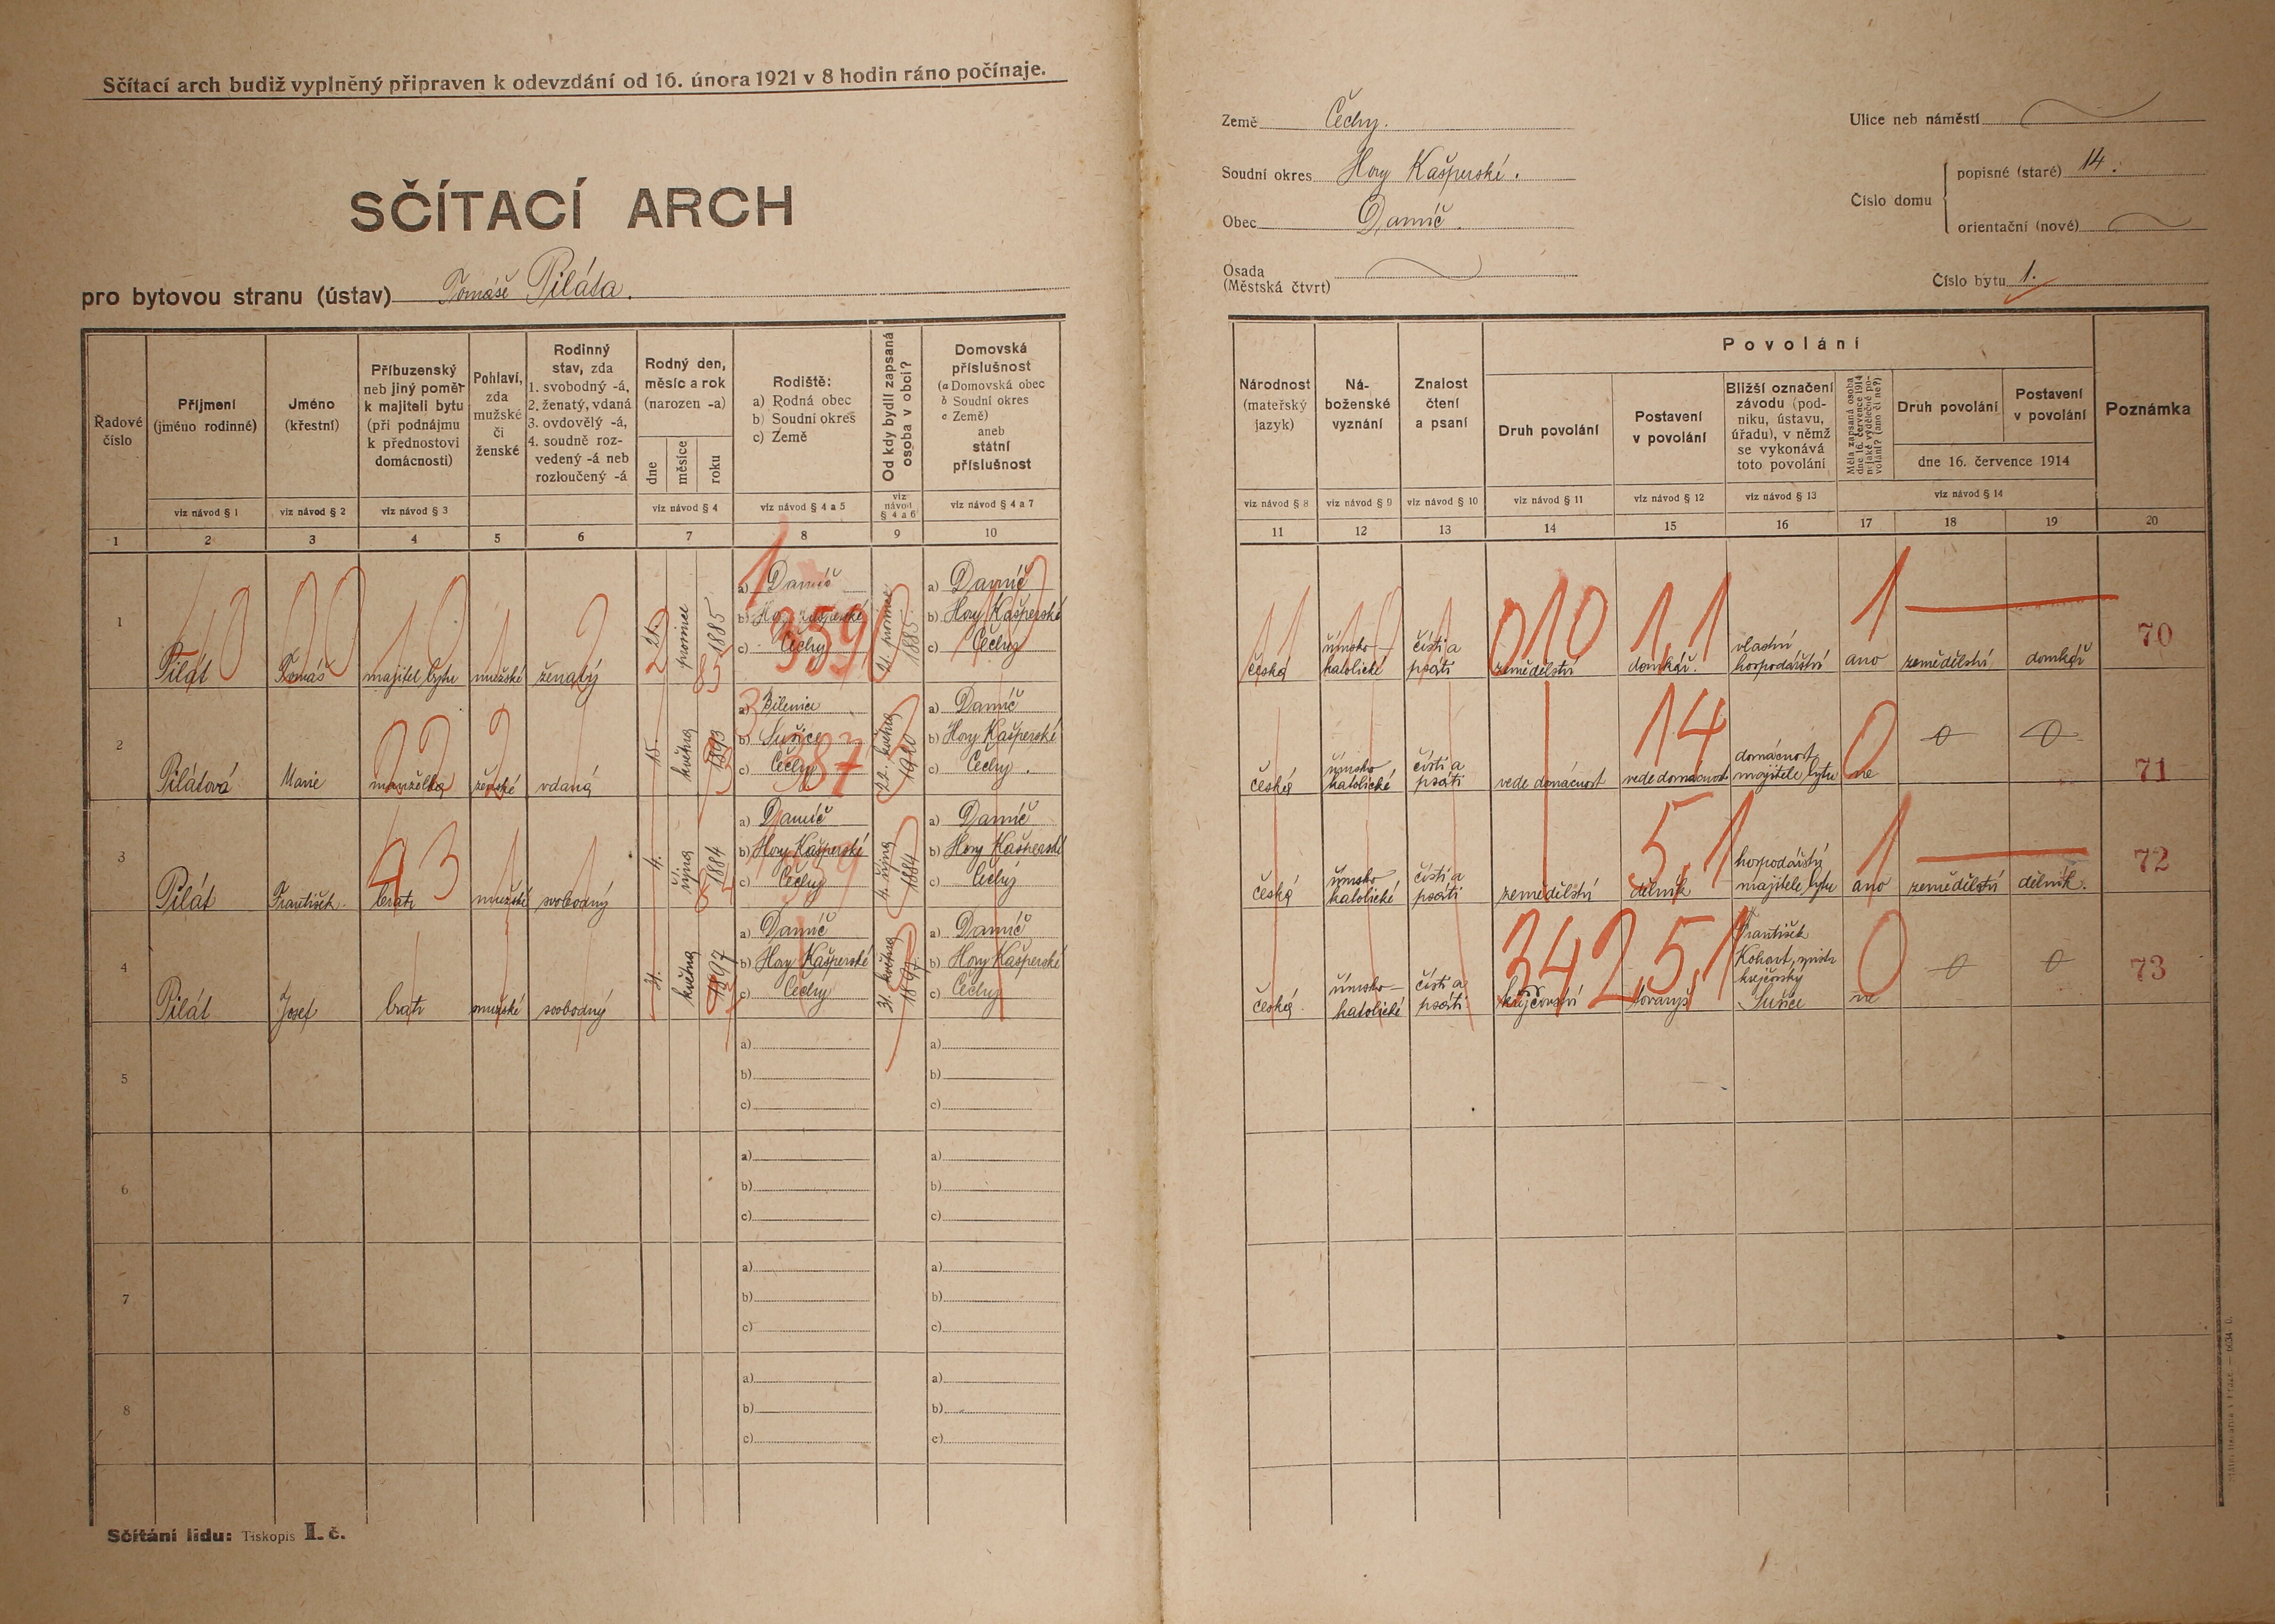 Sčítací arch budiž vyplněný připraven k odevzdání od 16. února 1921 v 8 hodin ráno počínaje.
SČÍTACÍ ARCH
pro bytovou stranu (ústav) Tomáše Piláta.
Země Čechy.
Soudní okres Hory Kašperské.
Obec Damíč.
Osada
(Městská čtvrt)
Ulice neb náměstí
Číslo domu
popisné (staré) 14.
orientační (nové)
Číslo bytu 1.
Řadové
číslo
Příjmení
(jméno rodinné)
viz návod § 1
Jméno
(křestní)
viz návod § 2
Příbuzenský
neb jiný poměr
k majiteli bytu
(při podnájmu
k přednostovi
domácnosti)
viz návod § 3
Pohlaví,
zda
mužské
či
ženské
Rodinný
stav, zda
1. svobodný -á,
2. ženatý, vdaná
3. ovdovělý -á,
4. soudně roz-
vedený -á neb
rozloučený -á
Rodný den,
měsíc a rok
(narozen -a)
dne
měsíce
roku
viz návod § 4
Rodiště:
a) Rodná obec
b) Soudní okres
c) Země
viz návod § 4 a 5
Od kdy bydlí zapsaná
osoba v obci?
viz
návod
§ 4 a 6
Domovská
příslušnost
(a Domovská obec
b Soudní okres
c Země)
aneb
státní
příslušnost
viz návod § 4 a 7
Národnost
(mateřský
jazyk)
viz návod § 8
Ná-
boženské
vyznání
viz návod § 9
Znalost
čtení
a psaní
viz návod § 10
Povolání
Druh povolání
viz návod § 11
Postavení
v povolání
viz návod § 12
Bližší označení
závodu (pod-
niku, ústavu,
úřadu), v němž
se vykonává
toto povolání
viz návod § 13
Měla zapsaná osoba
dne 16. července 1914
nějaké výdělečné po-
volání? (ano či ne?)
Druh povolání
Postavení
v povolání
dne 16. července 1914
viz návod § 14
Poznámka
1 2 3 4 5 6 7 8 9 10
11 12 13 14 15 16 17 18 19 20
1
Pilát Tomáš majitel bytu mužské ženatý
21. prosince 1885
85
a) Damíč
b) Hory Kašperské
c) Čechy
359
21. prosince
1885
a) Damíč
b) Hory Kašperské
c) Čechy
česká
římsko-
katolické
čísti a
psáti
010
zemědělství
1,1
domkář.
vlastní
hospodářství
1
ano zemědělství domkář
70
2
Pilátová Marie manželka ženské vdaná
15. května 1893
a) Bilenice
b) Sušice
c) Čechy
387
22. května
1920
a) Damíč
b) Hory Kašperské
c) Čechy.
česká
římsko
katolické
čísti a
psáti
vede domácnost
14
vede domácnost
domácnost
majitele bytu
0
ne 0 0
71
3
Pilát František. bratr mužské svobodný
43
4. října 1884
a) Damíč
b) Hory Kašperské
c) Čechy
4. října
1884
a) Damíč
b) Hory Kašperské
c) Čechy
česká
římsko
katolické
čísti a
psáti
zemědělství
5,1
dělník
hospodářství
majitele bytu
1
ano zemědělství dělník.
72
4
Pilát Josef bratr mužské svobodný
31. května 1897
a) Damíč
b) Hory Kašperské
c) Čechy
31. května
1897
a) Damíč
b) Hory Kašperské
c) Čechy
česká
římsko-
katolické
čísti a
psáti
342,5,1
krejčovství
tovaryš
František
Kohout, mistr
krejčovský
Sušice
0
ne 0 0
73
5
a)
b)
c)
a)
b)
c)
6
a)
b)
c)
a)
b)
c)
7
a)
b)
c)
a)
b)
c)
8
a)
b)
c)
a)
b)
c)
Sčítání lidu: Tiskopis I. č.